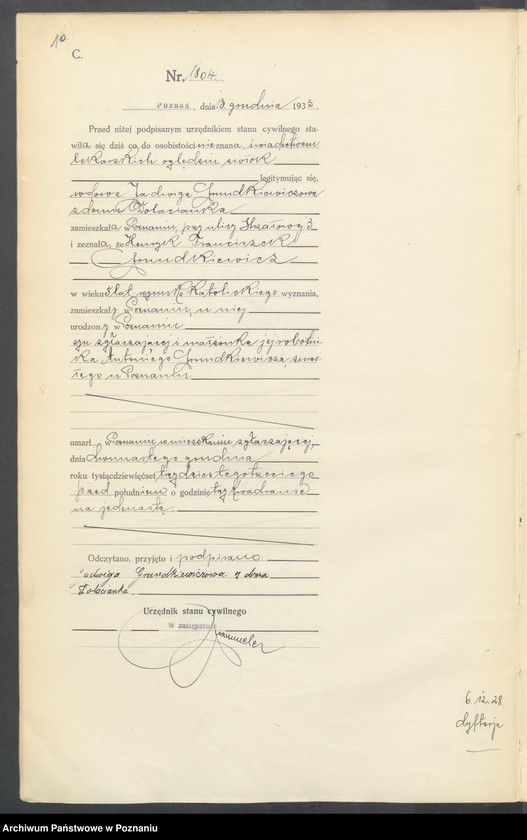 10.
C.
Nr. 1804.
Poznań, dnia 13. grudnia 1933
Przed niżej podpisanym urzędnikiem stanu cywilnego sta-
wiła się dziś co do osobistości nieznana, świadectwem
lekarskich oględzin zwłok
legitymując się,
wdowa Jadwiga Grundkiewiczowa
z domu
zamieszkała w Poznaniu, przy ulicy Strzałowej 3
i zeznała, że Henryk Franciszek
Grundkiewicz
w wieku 5 lat, rzymsko katolickiego wyznania,
zamieszkały w Poznaniu, u niej
urodzony w Poznaniu
syn zgłaszającej i małżonka jej robotni-
ka Antoniego Grundkiewicza, zmar-
łego w Poznaniu
umarł w Poznaniu, w mieszkaniu zgłaszającej,
dnia dwunastego grudnia
roku tysiącdziewięćset trzydziestego trzeciego
przed południem o godzinie trzy kwadranse
na jedenastą.
Odczytano, przyjęto i podpisano
Jadwiga Grundkiewiczowa z domu
Urzędnik stanu cywilnego
W zastępstwie
6. 12. 28
dyfterja
Archiwum Państwowe w Poznaniu